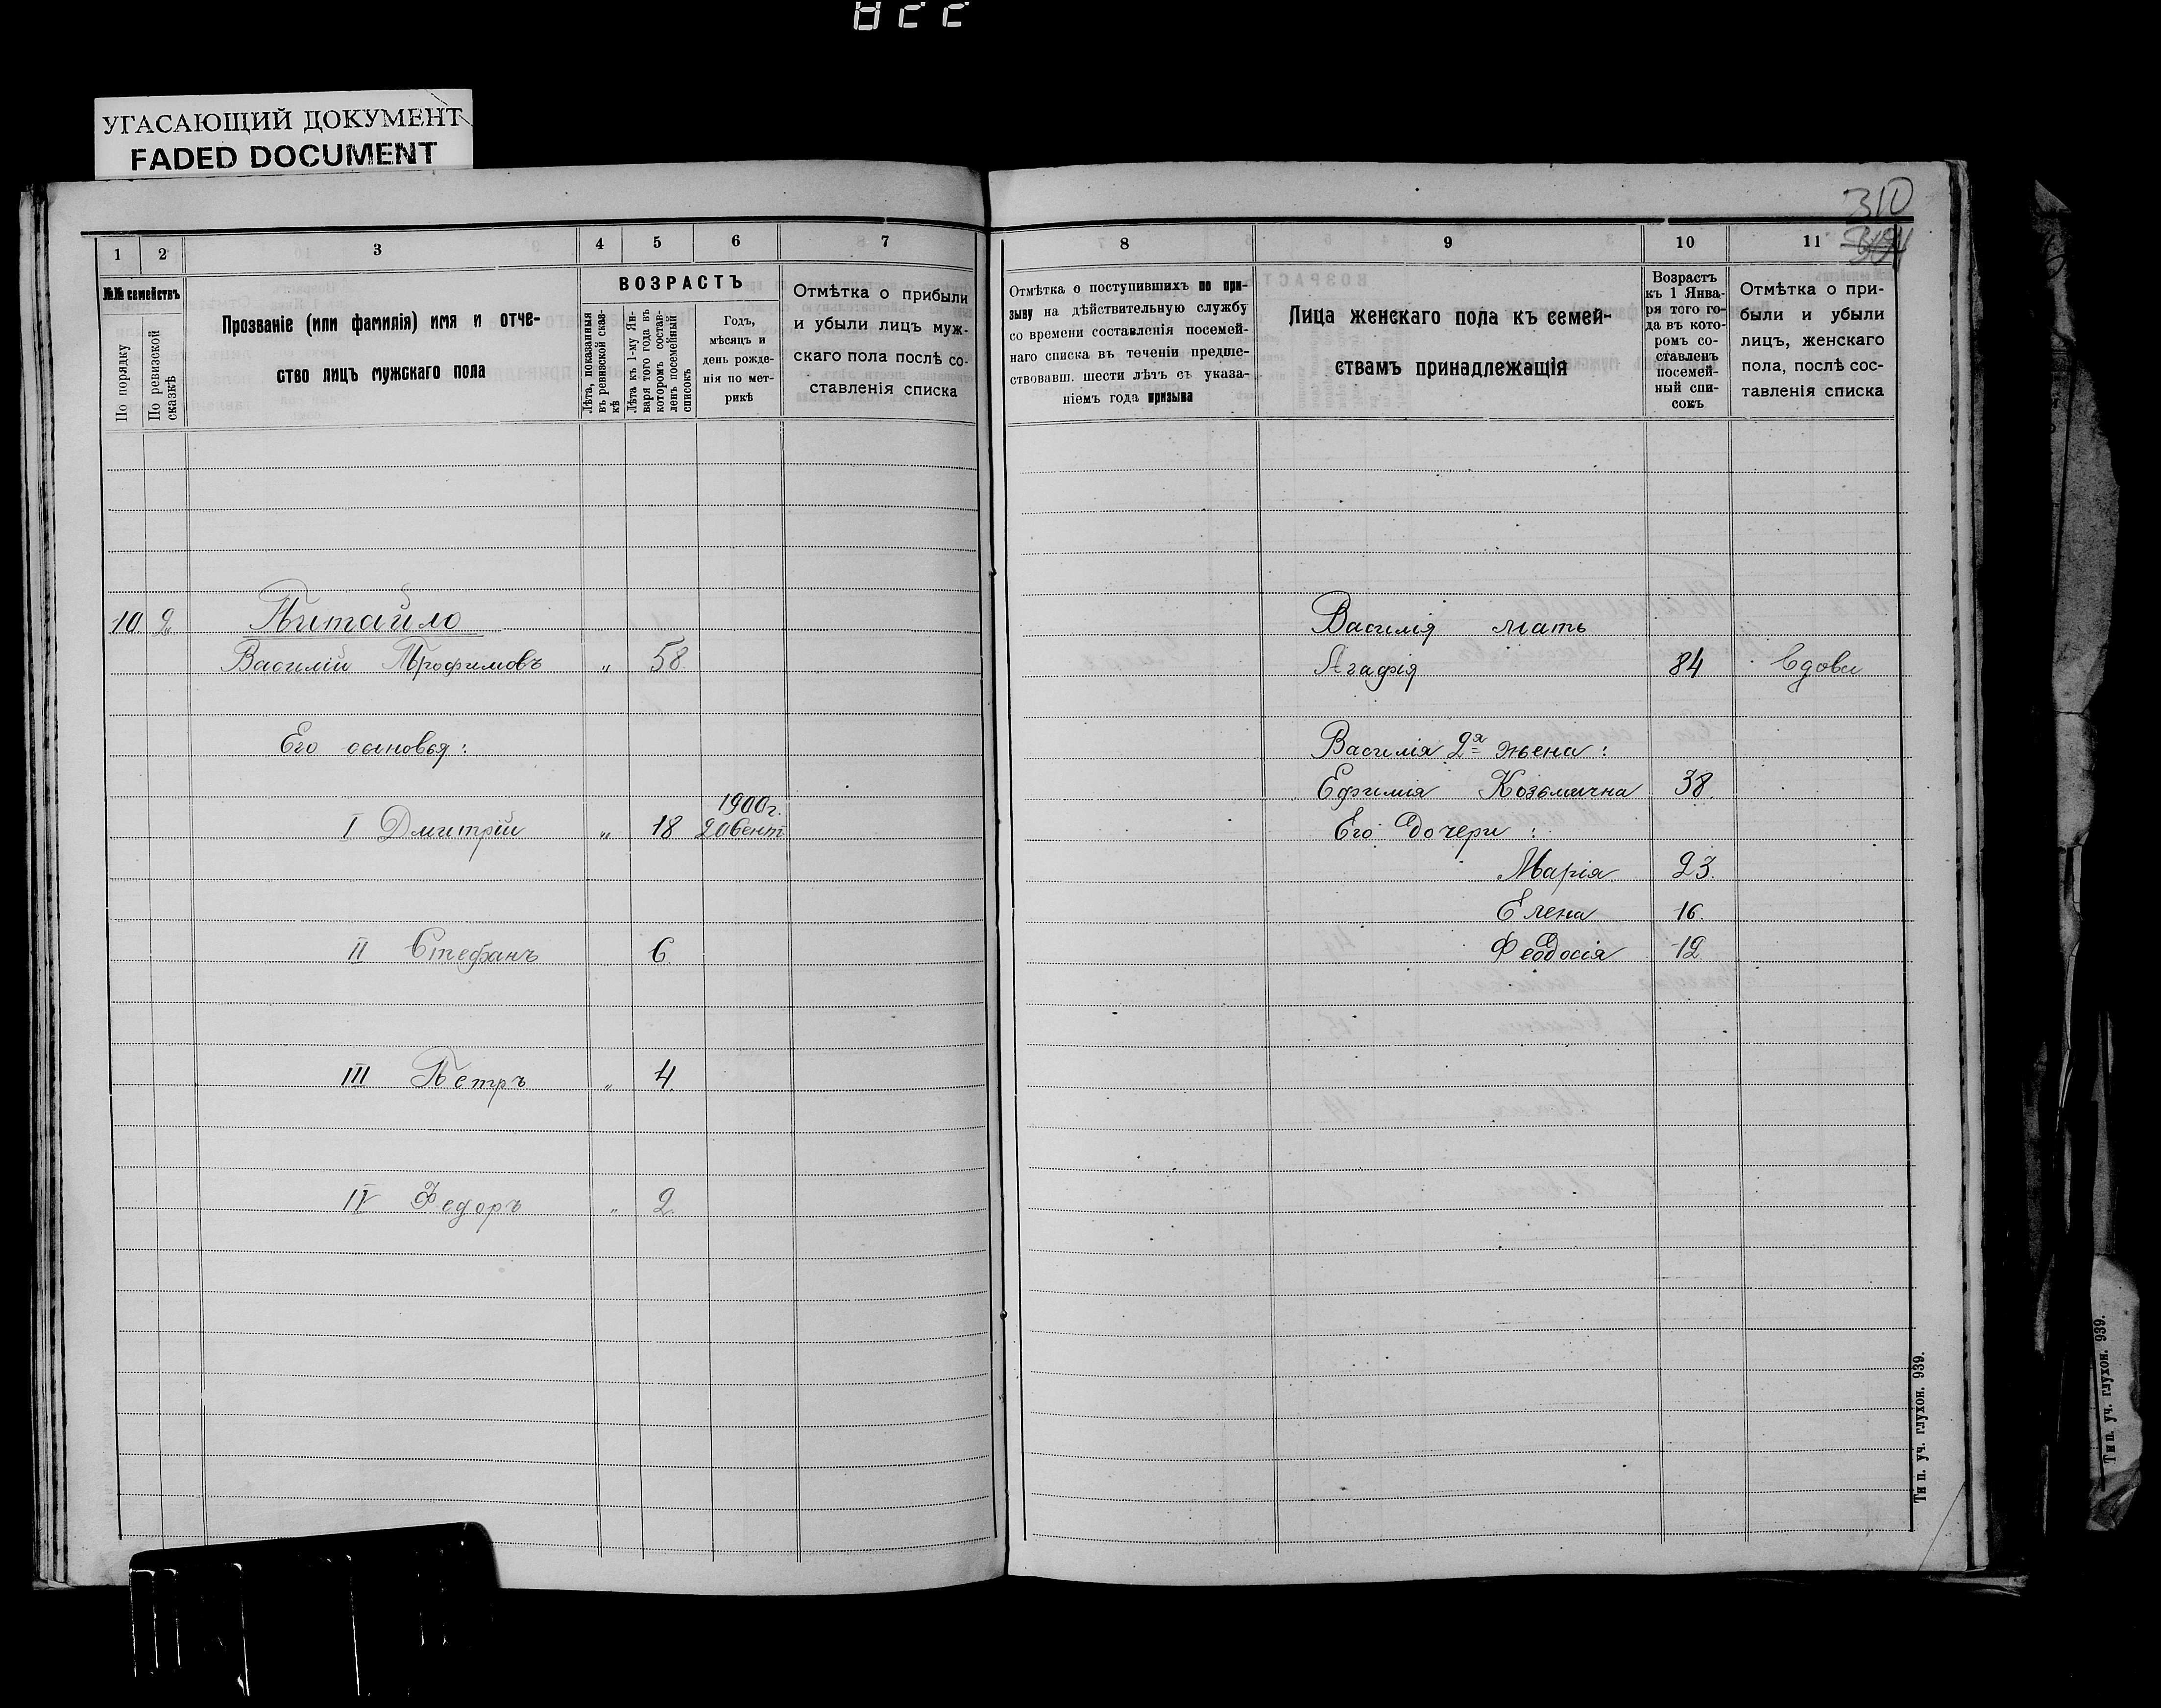 УГАСАЮЩИЙ ДОКУМЕНТ
FADED DOCUMENT
310
1 2 3 4 5 6 7
№№ семействъ
По порядку
По ревизской сказкѣ
Прозваніе (или фамилія) имя и отче-
ство лицъ мужскаго пола
ВОЗРАСТЪ
Лѣта, показанныя
въ ревизской сказ-
кѣ
Лѣта къ 1-му Ян-
варя того года въ
которомъ состав-
ленъ посемейный
списокъ
Годъ,
мѣсяцъ и
день рожде-
нія по мет-
рикѣ
Отмѣтка о прибыли
и убыли лицъ муж-
скаго пола послѣ со-
ставленія списка
10 2 Питайло
Василій Трофимовъ „ 58
Его сыновья:
1900г.
I Дмитрій „ 18 20 Сент
II Стефанъ 6
III Петръ „ 4
IV Федоръ „ 2
8 9 10 11
Отмѣтка о поступившихъ по при-
зыву на дѣйствительную службу
со времени составленія посемей-
наго списка въ теченіи предше-
ствовавш. шести лѣтъ съ указа-
ніемъ года призыва
Лица женскаго пола къ семей-
ствамъ принадлежащія
Возрастъ
къ 1 Янва-
ря того го-
да въ кото-
ромъ со-
ставленъ
посемей-
ный спи-
сокъ
Отмѣтка о при-
были и убыли
лицъ, женскаго
пола, послѣ сос-
тавленія списка
Василія мать
Агафія 84 Вдова
Василія 2я жена:
Ефимія Козьмична 38
Его дочери:
Марія 23
Елена 16
Феодосія 12
Тип. уч. глухон. 939.
Тип. уч. глухон. 939.